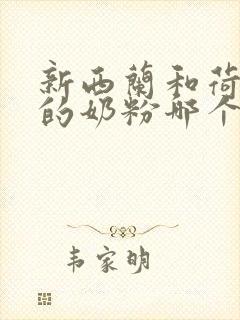 新西蘭和荷
的奶粉哪个
韦家明